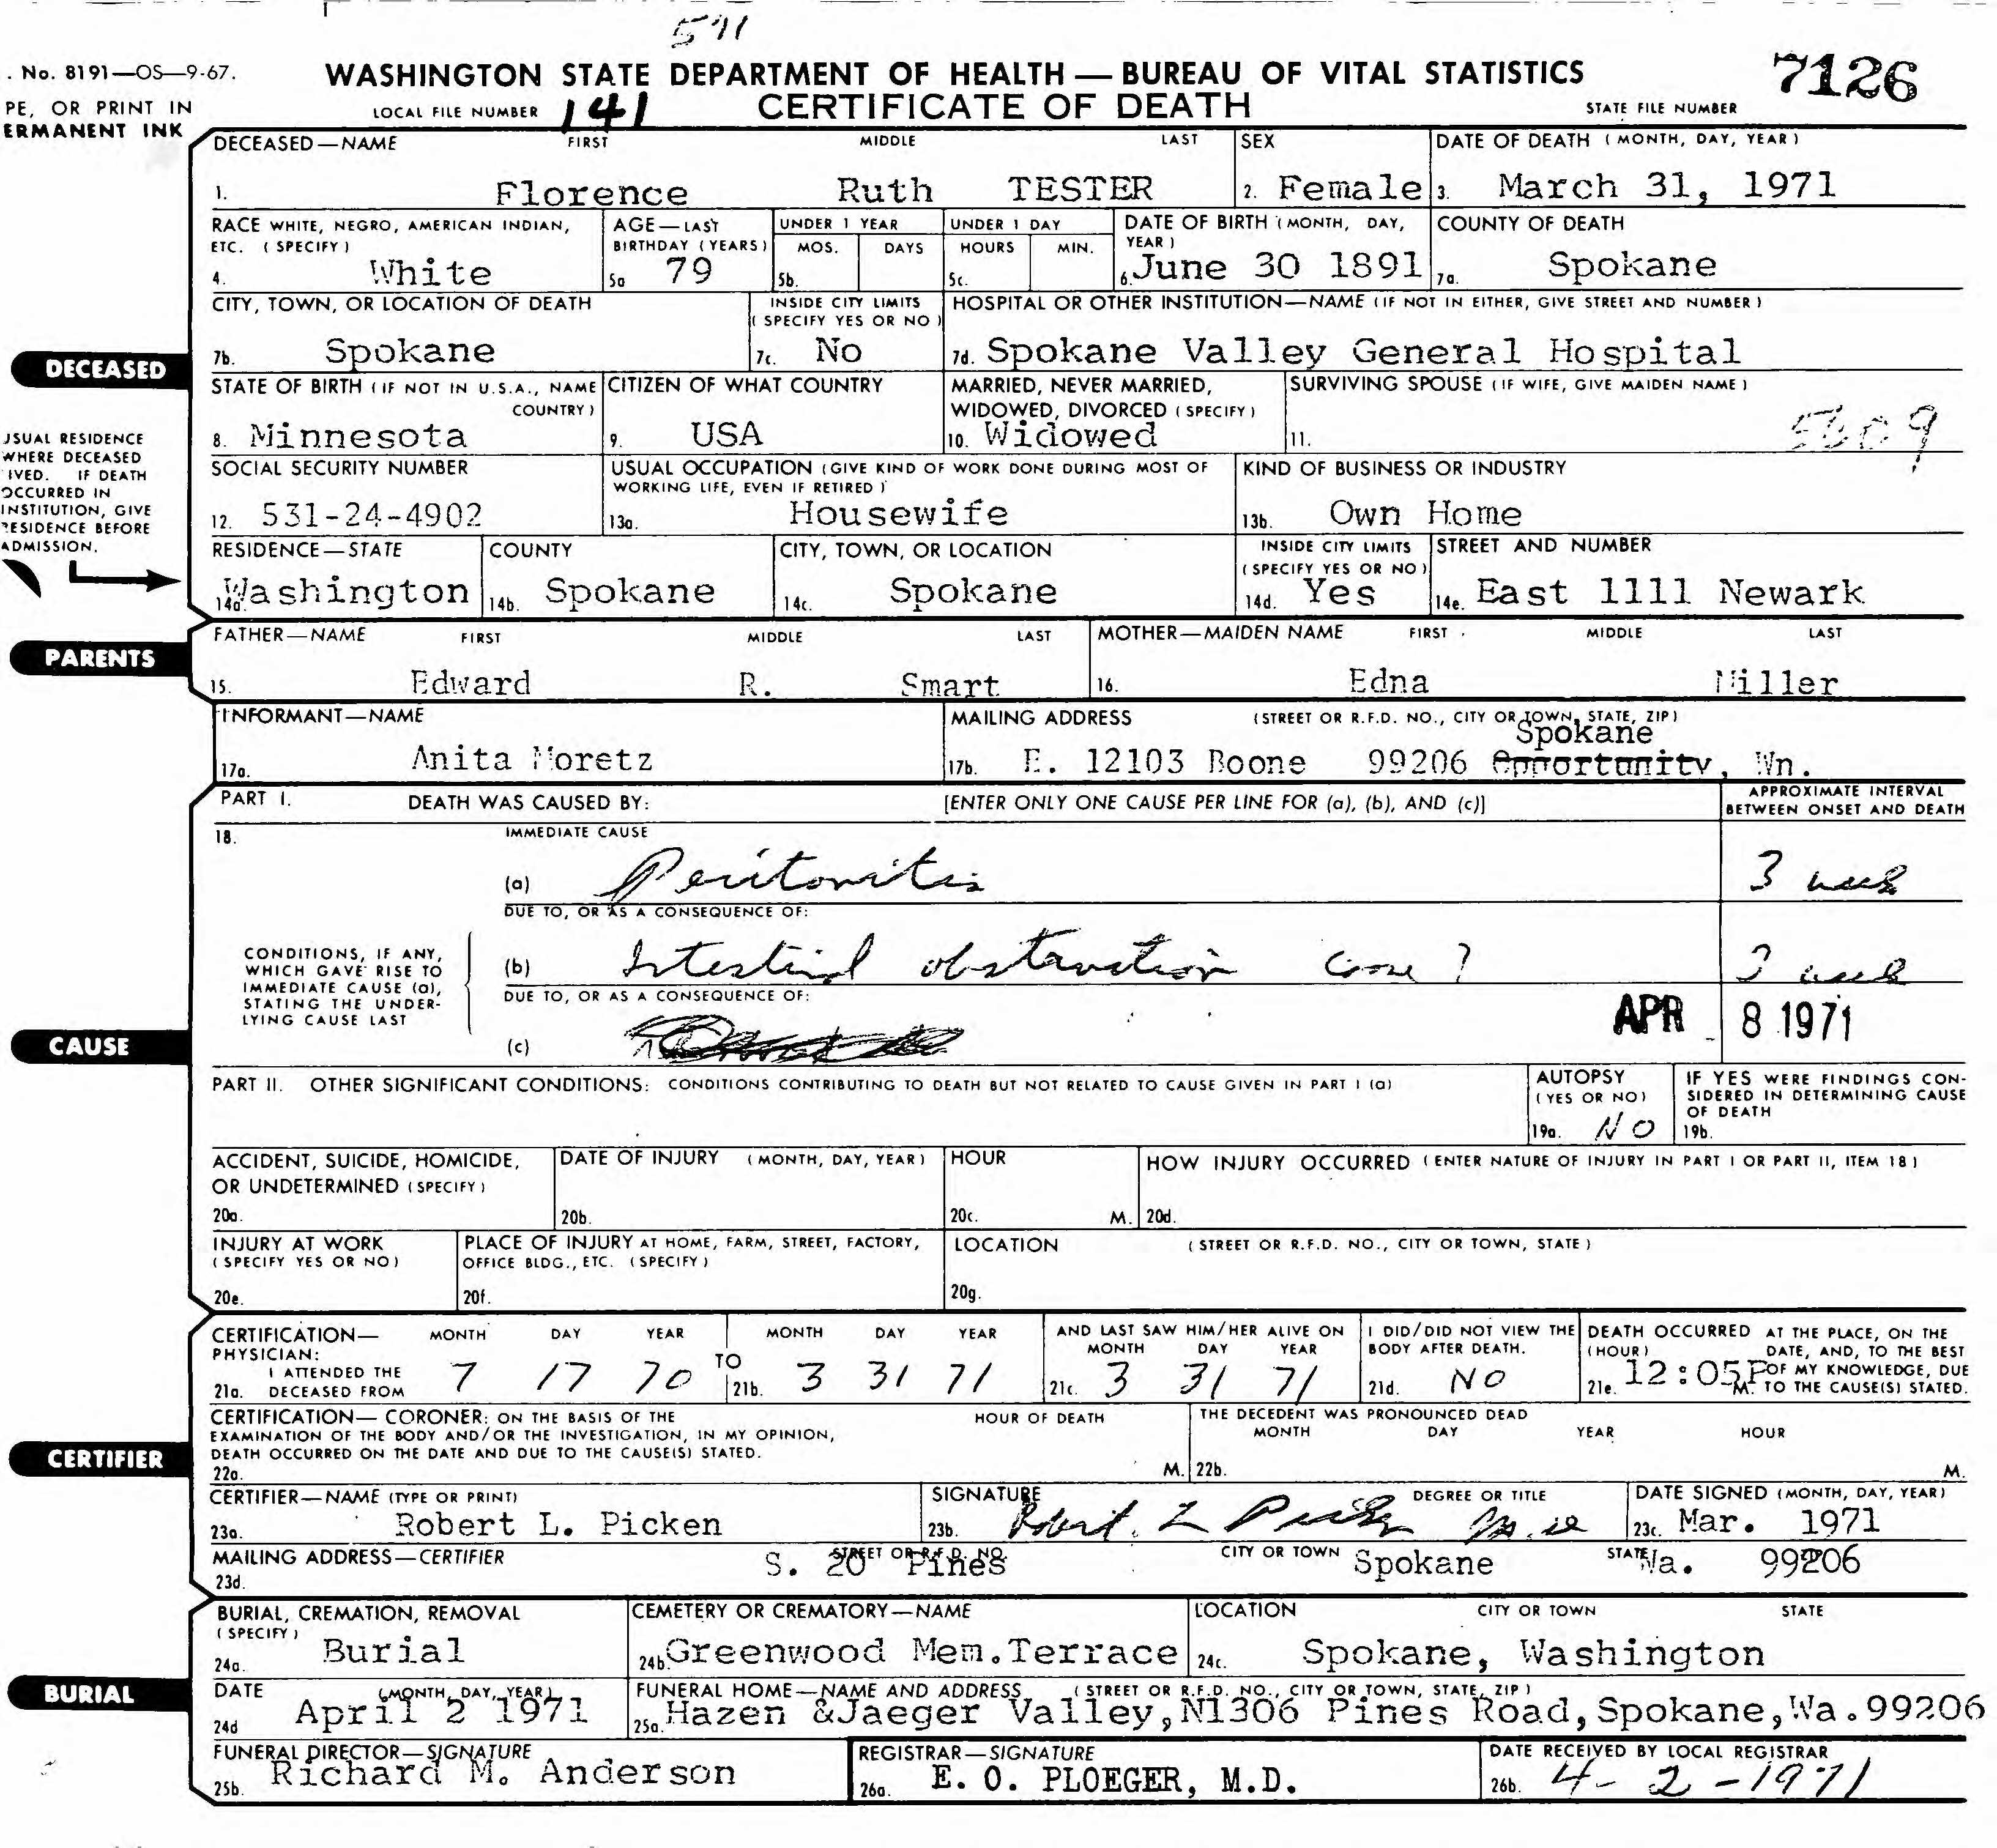 591
. No. 8191—OS—9-67.
WASHINGTON STATE DEPARTMENT OF HEALTH — BUREAU OF VITAL STATISTICS
7126
PE, OR PRINT IN
ERMANENT INK
LOCAL FILE NUMBER 141
CERTIFICATE OF DEATH
STATE FILE NUMBER
DECEASED—NAME FIRST MIDDLE LAST SEX DATE OF DEATH (MONTH, DAY, YEAR)
1. Florence Ruth TESTER 2. Female 3. March 31, 1971
RACE WHITE, NEGRO, AMERICAN INDIAN, AGE—LAST UNDER 1 YEAR UNDER 1 DAY DATE OF BIRTH (MONTH, DAY, COUNTY OF DEATH
ETC. (SPECIFY) BIRTHDAY (YEARS) MOS. DAYS HOURS MIN. YEAR)
4. White 5a 79 5b. 5c. 6. June 30 1891 7a. Spokane
CITY, TOWN, OR LOCATION OF DEATH INSIDE CITY LIMITS HOSPITAL OR OTHER INSTITUTION—NAME (IF NOT IN EITHER, GIVE STREET AND NUMBER)
(SPECIFY YES OR NO)
7b. Spokane 7c. No 7d. Spokane Valley General Hospital
DECEASED
STATE OF BIRTH (IF NOT IN U.S.A., NAME CITIZEN OF WHAT COUNTRY MARRIED, NEVER MARRIED, SURVIVING SPOUSE (IF WIFE, GIVE MAIDEN NAME)
COUNTRY) WIDOWED, DIVORCED (SPECIFY)
8. Minnesota 9. USA 10. Widowed 11. 5609
USUAL RESIDENCE
WHERE DECEASED
IVED. IF DEATH
OCCURRED IN
INSTITUTION, GIVE
RESIDENCE BEFORE
ADMISSION.
SOCIAL SECURITY NUMBER USUAL OCCUPATION (GIVE KIND OF WORK DONE DURING MOST OF KIND OF BUSINESS OR INDUSTRY
WORKING LIFE, EVEN IF RETIRED)
12. 531-24-4902 13a. Housewife 13b. Own Home
RESIDENCE—STATE COUNTY CITY, TOWN, OR LOCATION INSIDE CITY LIMITS STREET AND NUMBER
(SPECIFY YES OR NO)
14a. Washington 14b. Spokane 14c. Spokane 14d. Yes 14e. East 1111 Newark
PARENTS
FATHER—NAME FIRST MIDDLE LAST MOTHER—MAIDEN NAME FIRST MIDDLE LAST
15. Edward R. Smart 16. Edna Miller
INFORMANT—NAME MAILING ADDRESS (STREET OR R.F.D. NO., CITY OR TOWN, STATE, ZIP)
Spokane
17a. Anita Moretz 17b. E. 12103 Boone 99206 Opportunity, Wn.
PART I. DEATH WAS CAUSED BY: [ENTER ONLY ONE CAUSE PER LINE FOR (a), (b), AND (c)] APPROXIMATE INTERVAL
BETWEEN ONSET AND DEATH
18. IMMEDIATE CAUSE
(a) Peritonitis 3 week
DUE TO, OR AS A CONSEQUENCE OF:
CONDITIONS, IF ANY,
WHICH GAVE RISE TO
IMMEDIATE CAUSE (a),
STATING THE UNDER-
LYING CAUSE LAST
(b) Intestinal obstruction 3 week
DUE TO, OR AS A CONSEQUENCE OF:
APR 8 1971
CAUSE
(c)
PART II. OTHER SIGNIFICANT CONDITIONS: CONDITIONS CONTRIBUTING TO DEATH BUT NOT RELATED TO CAUSE GIVEN IN PART I (a) AUTOPSY IF YES WERE FINDINGS CON-
(YES OR NO) SIDERED IN DETERMINING CAUSE
OF DEATH
19a. NO 19b.
ACCIDENT, SUICIDE, HOMICIDE, DATE OF INJURY (MONTH, DAY, YEAR) HOUR HOW INJURY OCCURRED (ENTER NATURE OF INJURY IN PART I OR PART II, ITEM 18)
OR UNDETERMINED (SPECIFY)
20a. 20b. 20c. M. 20d.
INJURY AT WORK PLACE OF INJURY AT HOME, FARM, STREET, FACTORY, LOCATION (STREET OR R.F.D. NO., CITY OR TOWN, STATE)
(SPECIFY YES OR NO) OFFICE BLDG., ETC. (SPECIFY)
20e. 20f. 20g.
CERTIFICATION— MONTH DAY YEAR MONTH DAY YEAR AND LAST SAW HIM/HER ALIVE ON I DID/DID NOT VIEW THE DEATH OCCURRED AT THE PLACE, ON THE
PHYSICIAN: TO MONTH DAY YEAR BODY AFTER DEATH. (HOUR) DATE, AND, TO THE BEST
I ATTENDED THE OF MY KNOWLEDGE, DUE
21a. DECEASED FROM 7 17 70 21b. 3 31 71 21c. 3 31 71 21d. NO 21e. 12:05P M. TO THE CAUSE(S) STATED.
CERTIFICATION— CORONER: ON THE BASIS OF THE HOUR OF DEATH THE DECEDENT WAS PRONOUNCED DEAD
EXAMINATION OF THE BODY AND/OR THE INVESTIGATION, IN MY OPINION, MONTH DAY YEAR HOUR
DEATH OCCURRED ON THE DATE AND DUE TO THE CAUSE(S) STATED.
CERTIFIER
22a. M. 22b. M.
CERTIFIER—NAME (TYPE OR PRINT) SIGNATURE DEGREE OR TITLE DATE SIGNED (MONTH, DAY, YEAR)
23a. Robert L. Picken 23b. Robert L Picken 23c. Mar. 1971
MAILING ADDRESS—CERTIFIER STREET OR R.F.D. NO. CITY OR TOWN STATE
23d. S. 20 Pines Spokane Wa. 99206
BURIAL, CREMATION, REMOVAL CEMETERY OR CREMATORY—NAME LOCATION CITY OR TOWN STATE
(SPECIFY)
24a. Burial 24b. Greenwood Mem. Terrace 24c. Spokane, Washington
BURIAL
DATE (MONTH, DAY, YEAR) FUNERAL HOME—NAME AND ADDRESS (STREET OR R.F.D. NO., CITY OR TOWN, STATE, ZIP)
24d April 2 1971 25a. Hazen &Jaeger Valley, N1306 Pines Road, Spokane, Wa. 99206
FUNERAL DIRECTOR—SIGNATURE REGISTRAR—SIGNATURE DATE RECEIVED BY LOCAL REGISTRAR
25b. Richard M. Anderson 26a. E. O. PLOEGER, M.D. 26b. 4-2-1971